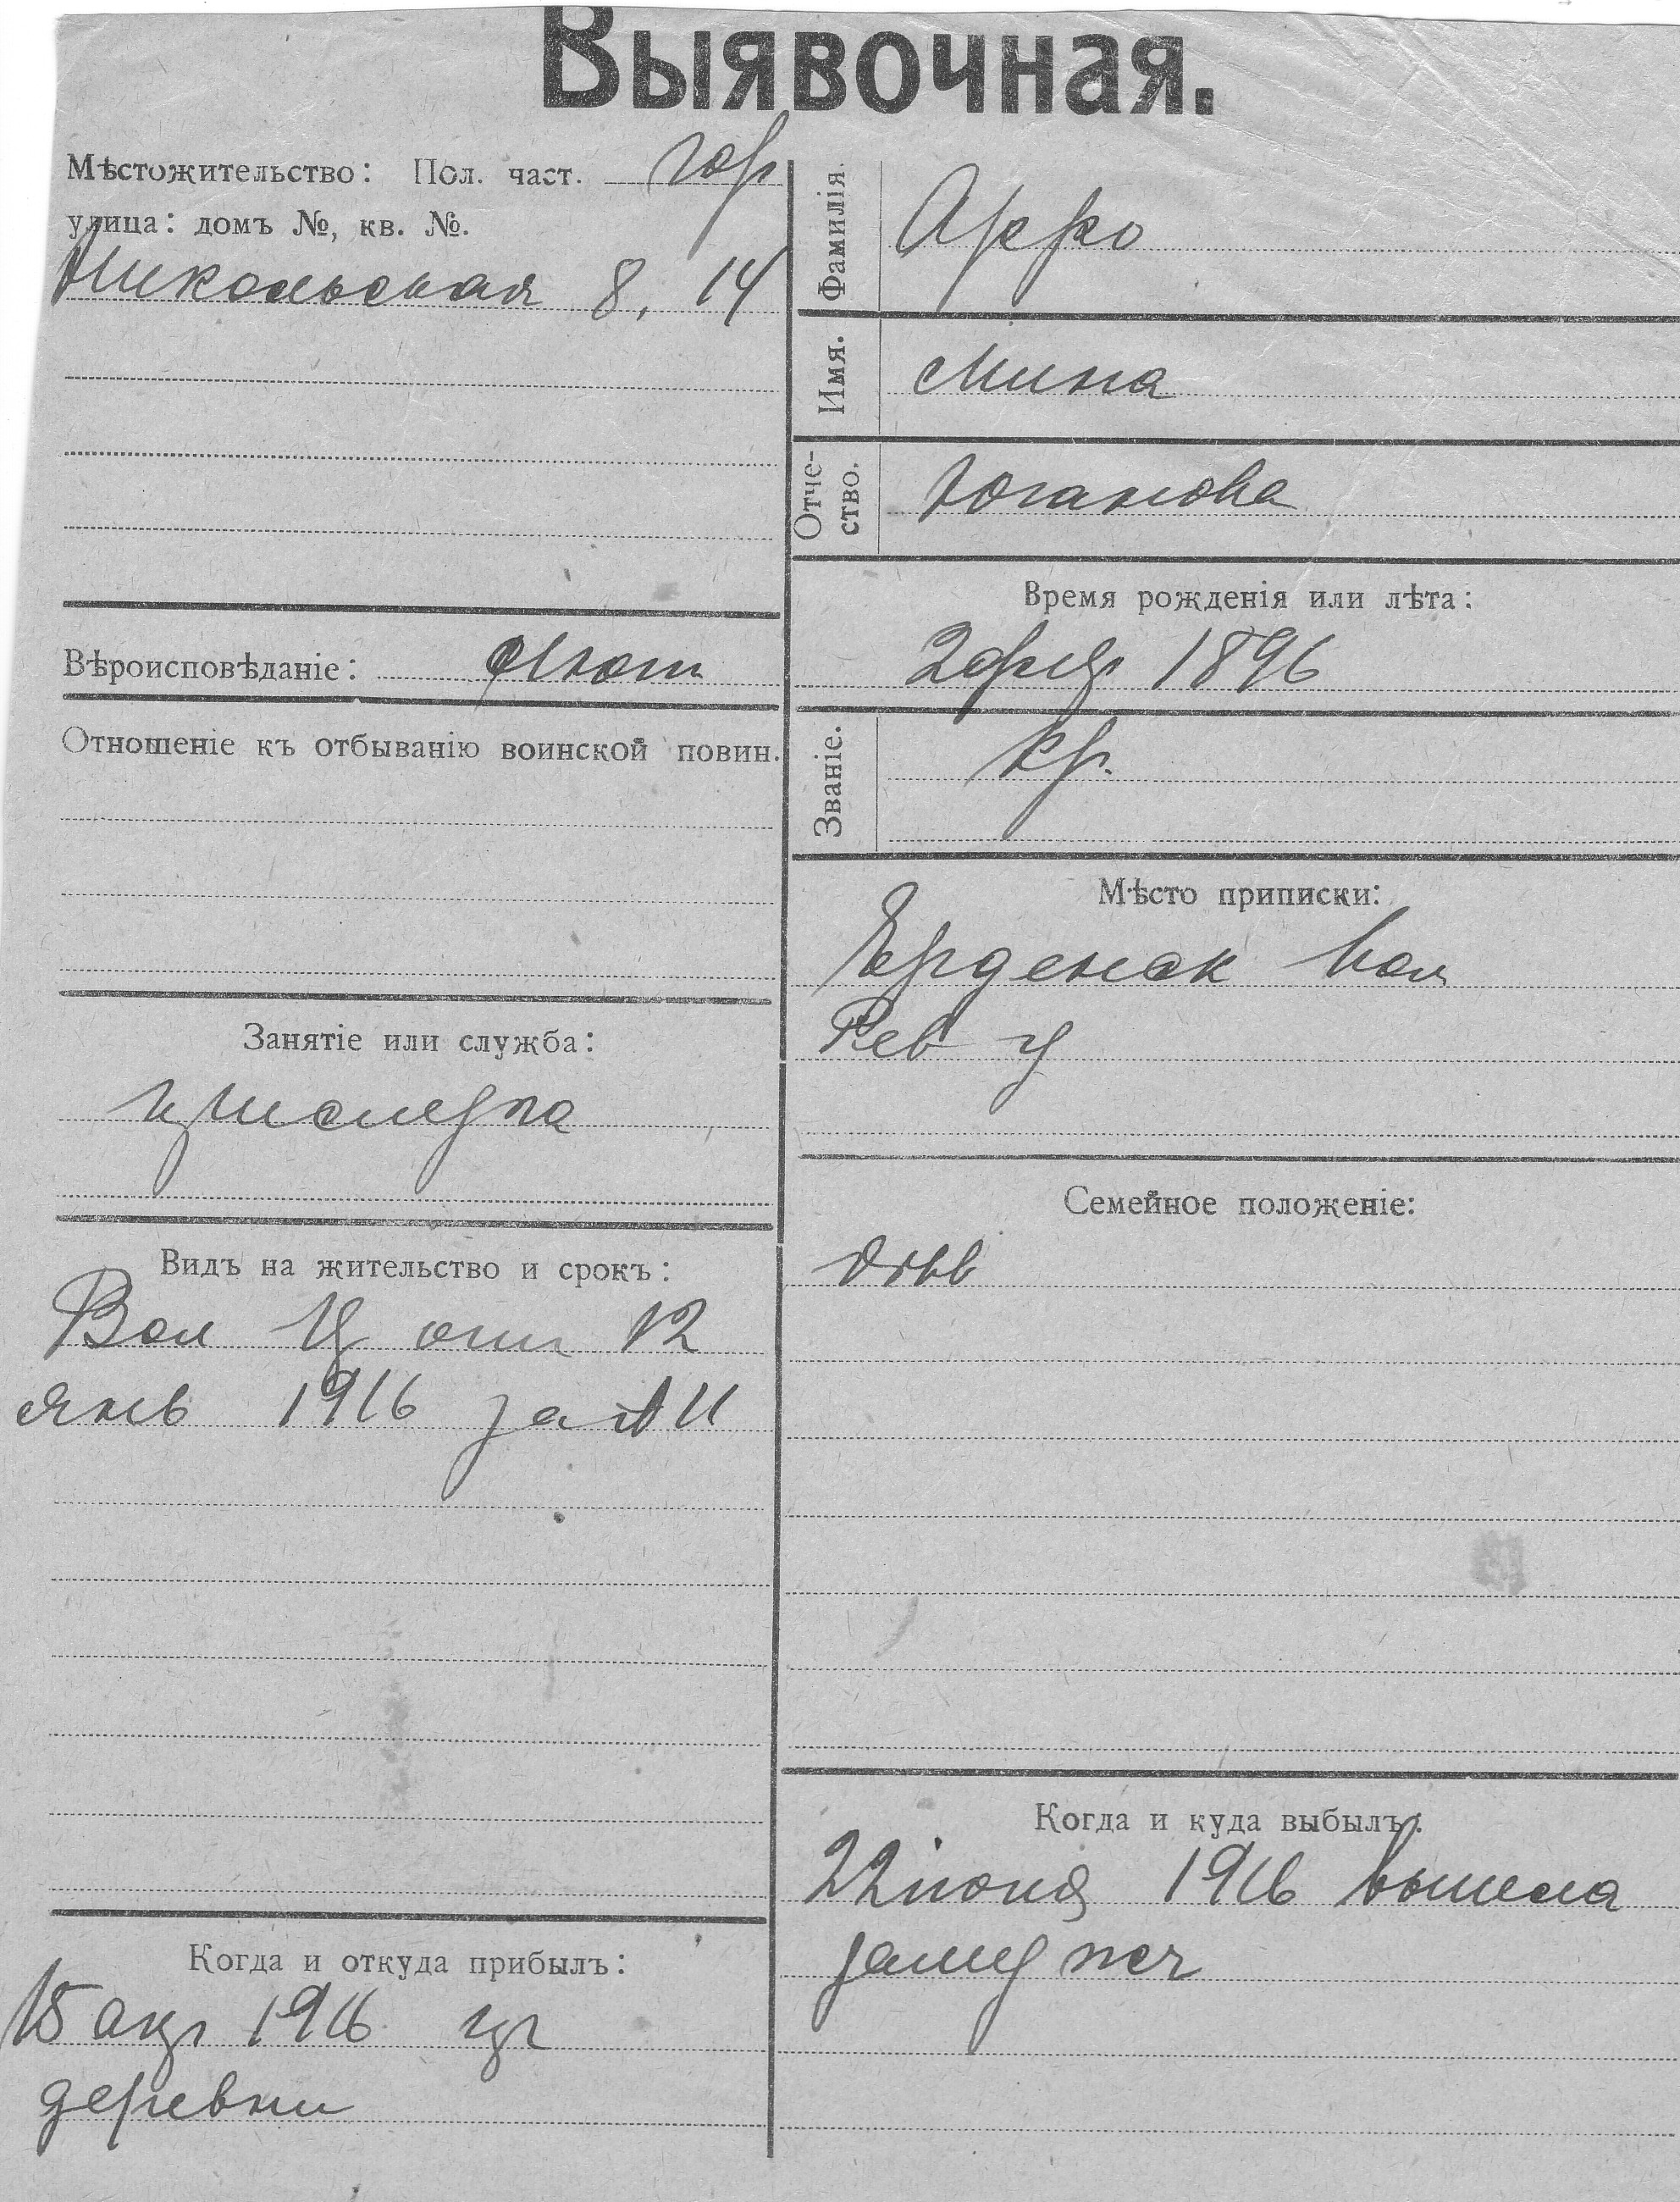 Выявочная.
Мѣстожительство: Пол. част. гор
улица: домъ №, кв. №.
Никольская 8, 14
Вѣроисповѣданіе: Лют
Отношеніе къ отбыванію воинской повин.
Занятіе или служба:
прислуга
Видъ на жительство и срокъ:
Вол Пр от 12
янв 1916 за № 11
Когда и откуда прибылъ:
15 апр 1916 из
деревни
Фамилія.
Имя. Мина
Отче-
ство.
Юганова
Время рожденія или лѣта:
1896
Званіе. кр.
Мѣсто приписки:
вол
Рев у
Семейное положеніе:
Когда и куда выбылъ:
22 іюня 1916 вышла
замуж